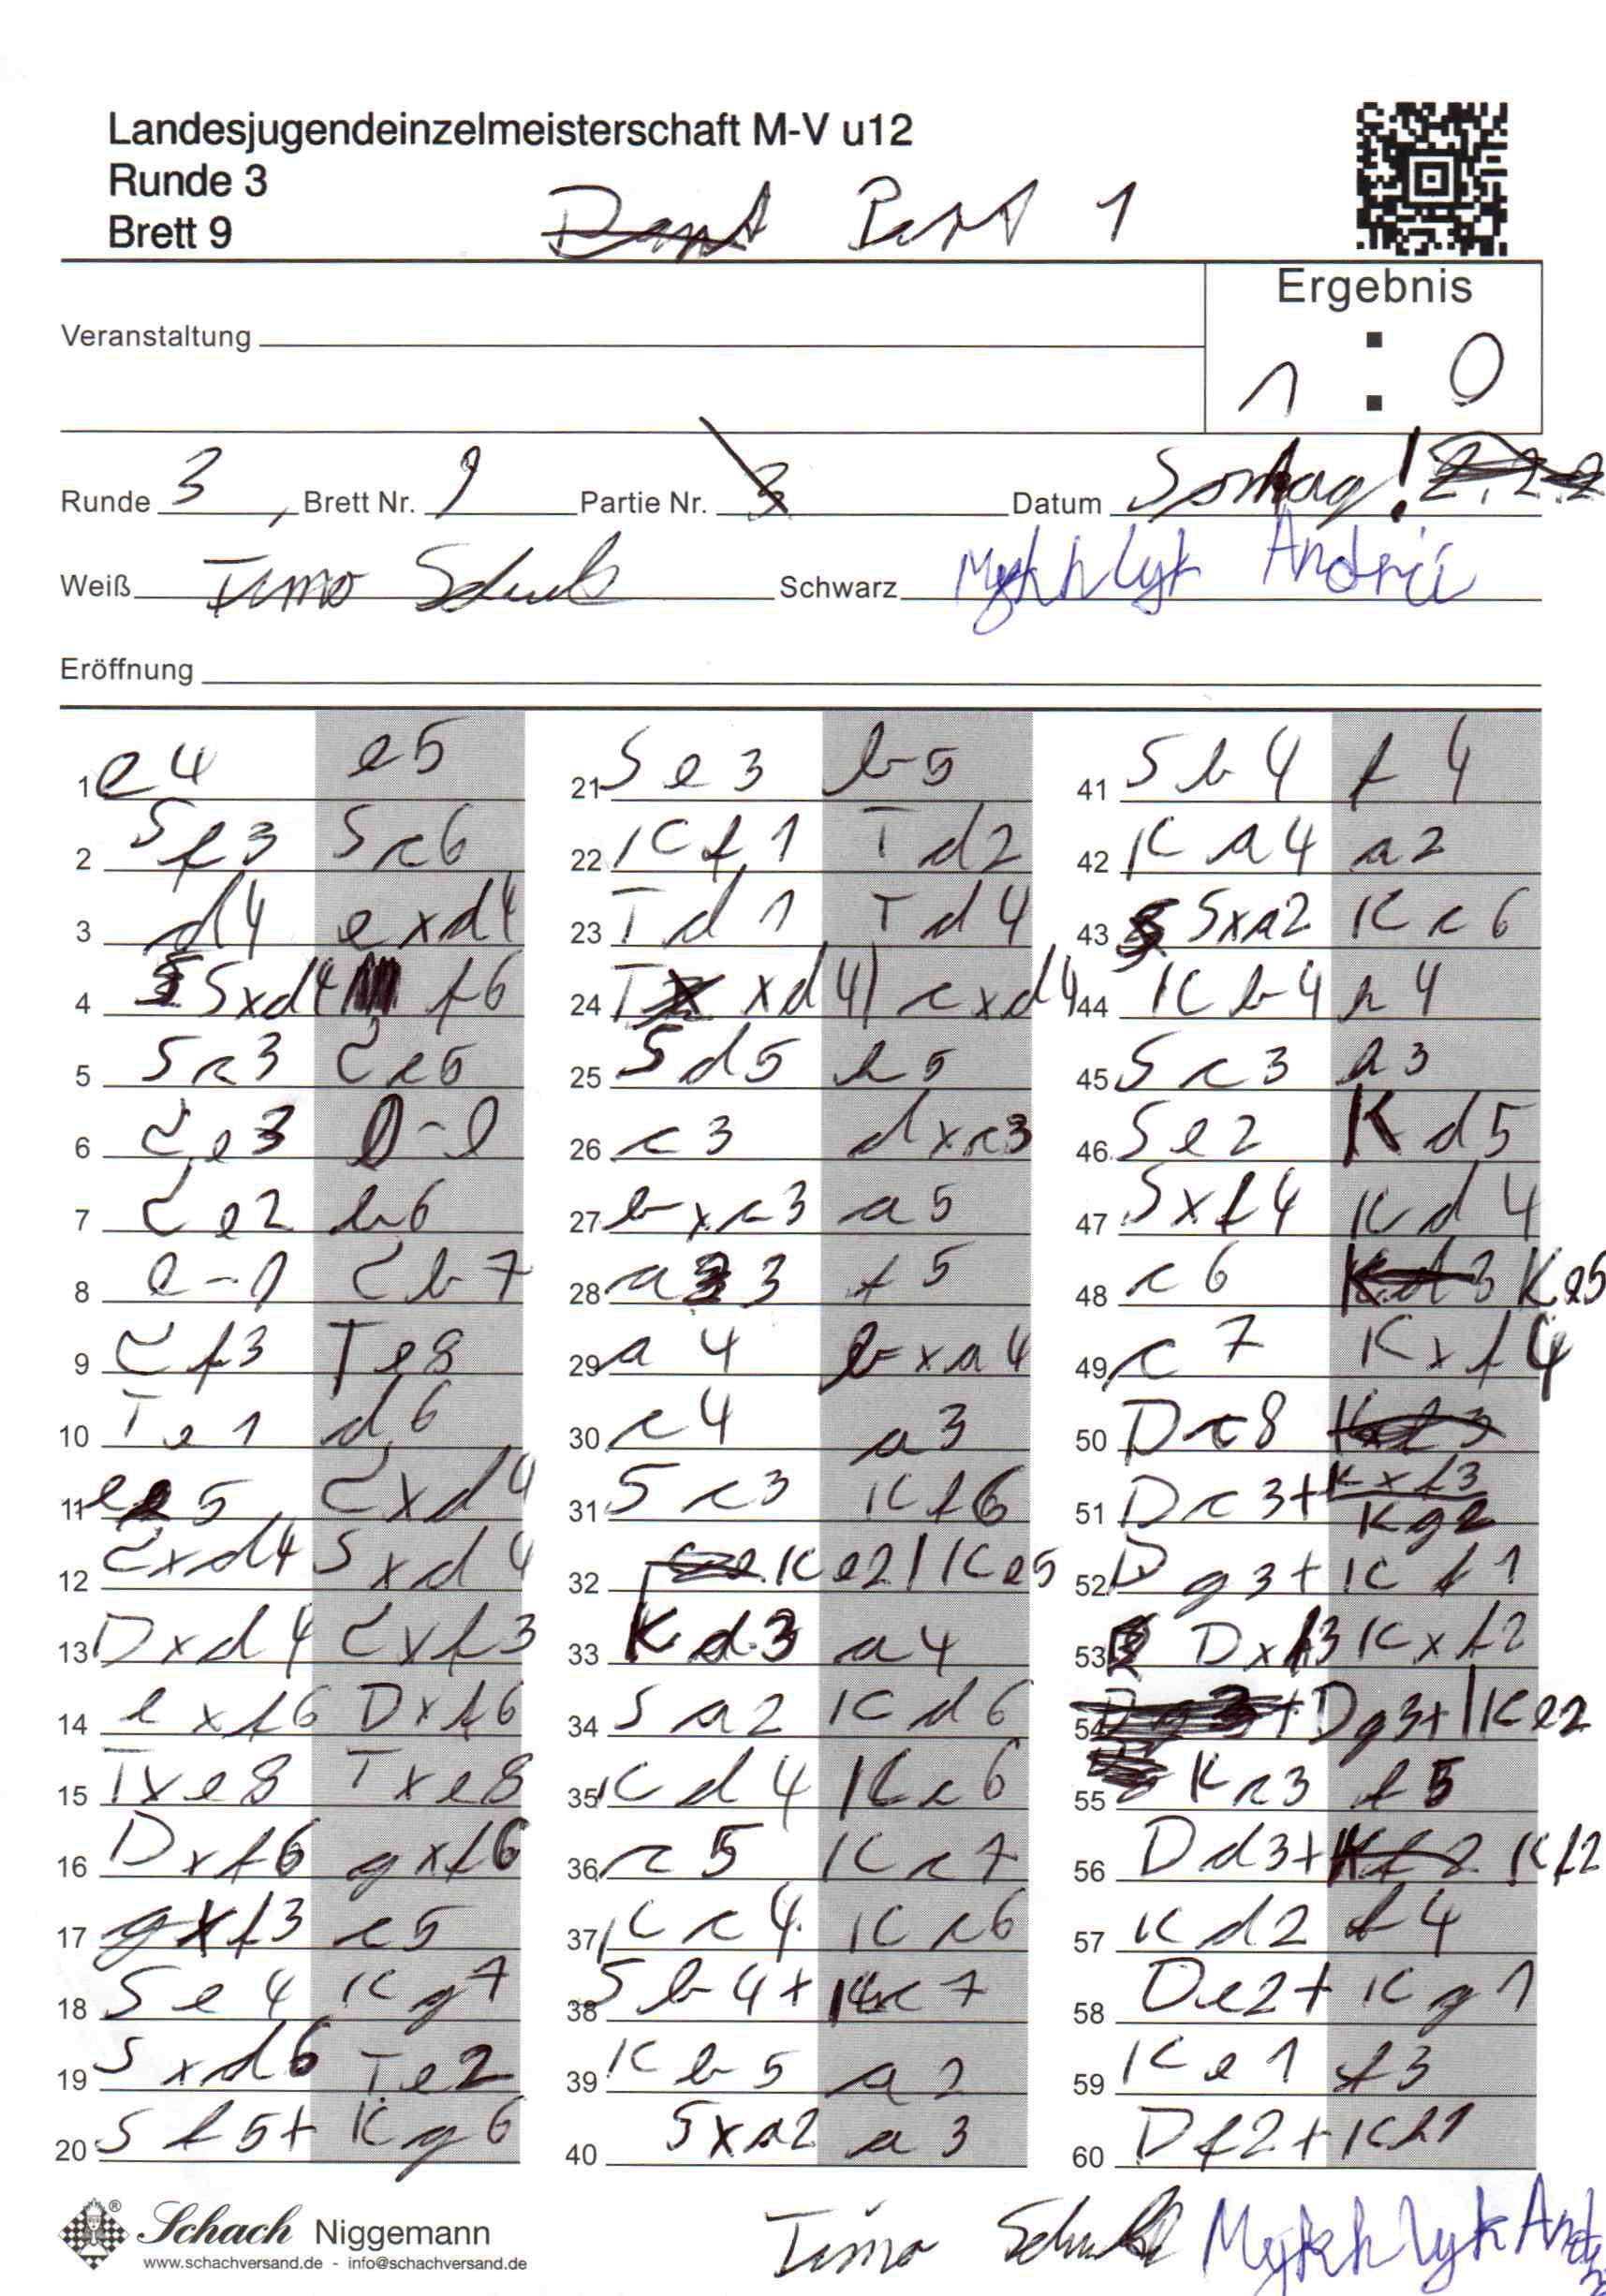 Landesjugendeinzelmeisterschaft M-V u12
Runde 3
Brett 9
Part 1
Ergebnis
1 : 0
Veranstaltung
Runde 3, Brett Nr. 9 Partie Nr. 3 Datum Sontag!
Weiß Timo Schwarz Mykhlyk Andrii
Eröffnung
1 e4 e5
2 Sf3 Sc6
3 d4 exd4
4 Sxd4 f6
5 Sc3 Lc5
6 Le3 0-0
7 Le2 b6
8 0-0 Lb7
9 Lf3 Te8
10 Te1 d6
11 e5 Lxd4
12 Lxd4 Sxd4
13 Dxd4 Lxf3
14 exf6 Dxf6
15 Txe8 Txe8
16 Dxf6 gxf6
17 gxf3 c5
18 Se4 Kg7
19 Sxd6 Te2
20 Sf5+ Kg6
21 Se3 b5
22 Kf1 Td2
23 Td1 Td4
24 Txd4 cxd4
25 Sd5 h5
26 c3 dxc3
27 bxc3 a5
28 a3 f5
29 a4 bxa4
30 c4 a3
31 Sc3 Kf6
32 Ke2 Ke5
33 Kd3 a4
34 Sa2 Kd6
35 Kd4 Kc6
36 c5 Kc7
37 Kc4 Kc6
38 Sb4+ Kc7
39 Kb5 a2
40 Sxa2 a3
41 Sb4 f4
42 Ka4 a2
43 Sxa2 Kc6
44 Kb4 h4
45 Sc3 h3
46 Se2 Kd5
47 Sxf4 Kd4
48 c6 Ke5
49 c7 Kxf4
50 Dc8 Kxf3
51 Dc3+ Kg2
52 Dg3+ Kf1
53 Dxh3 Kxf2
54 Dg3+ Ke2
55 Kc3 f5
56 Dd3+ Kf2
57 Kd2 f4
58 De2+ Kg1
59 Ke1 f3
60 Df2+ Kh1
Schach Niggemann
www.schachversand.de - info@schachversand.de
Timo Mykhlyk